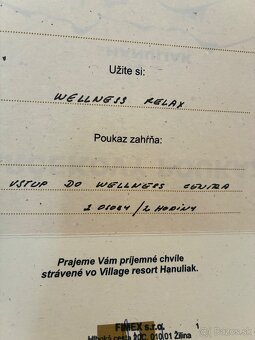 Užite si:
WELLNESS RELAX
Poukaz zahŕňa:
VSTUP DO WELLNESS CENTRA
2 OSOBY / 2 HODINY
Prajeme Vám príjemné chvíle
strávené vo Village resort Hanuliak.
FIMEX s.r.o.
Hlboká cesta 010 01 Žilina
bazos.sk